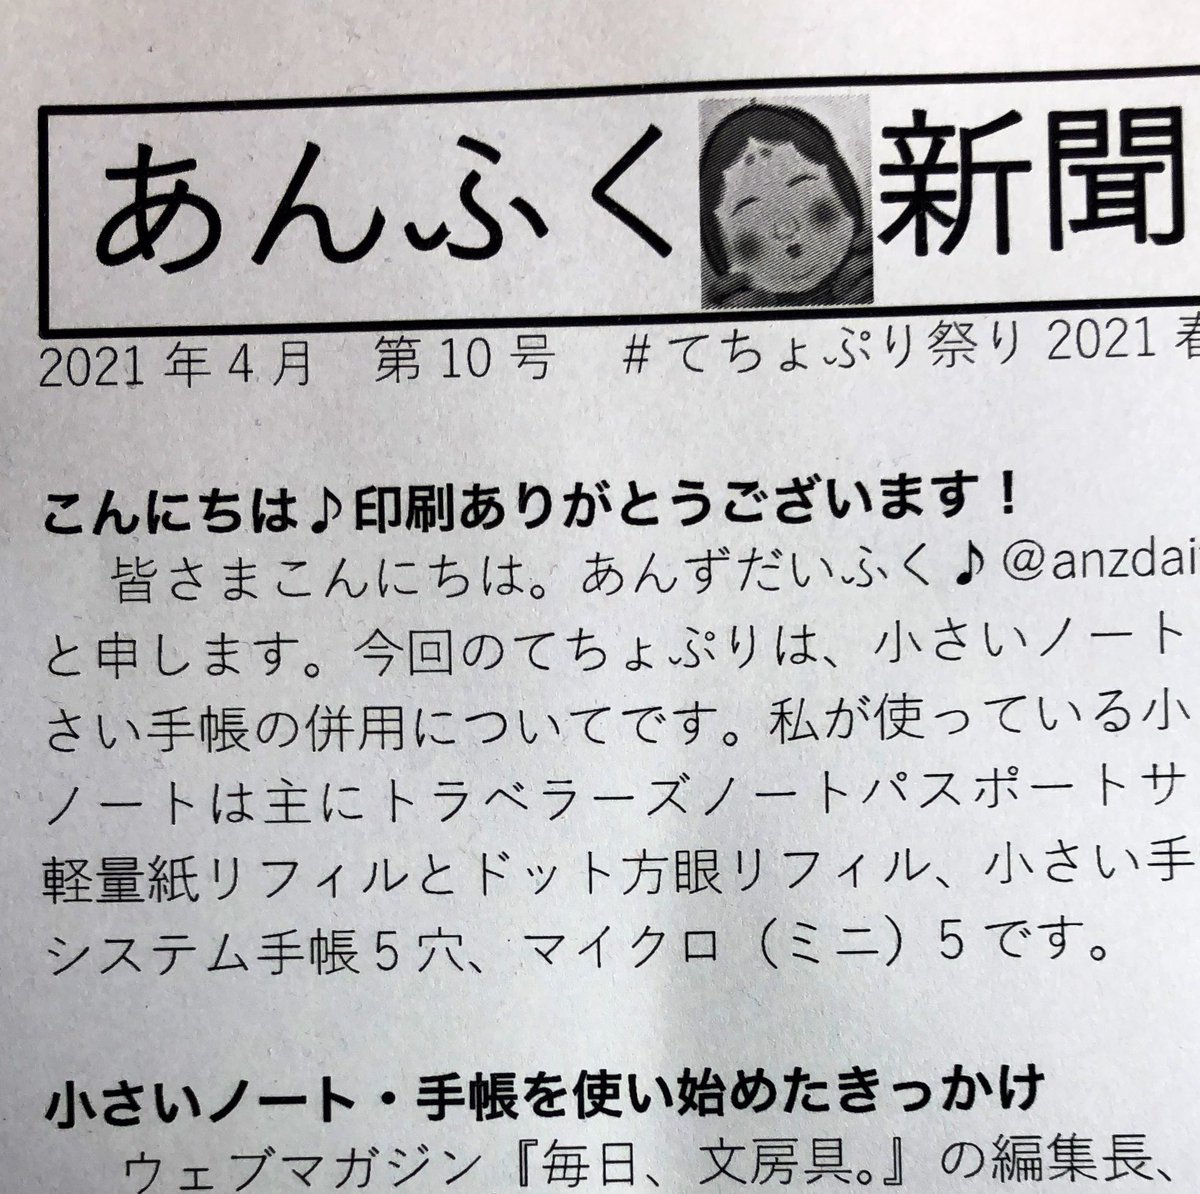 あんふく新聞
2021年4月　第10号　#てちょぷり祭り2021春
こんにちは♪印刷ありがとうございます！
皆さまこんにちは。あんずだいふく♪@anzdai
と申します。今回のてちょぷりは、小さいノート
さい手帳の併用についてです。私が使っている小
ノートは主にトラベラーズノートパスポートサ
軽量紙リフィルとドット方眼リフィル、小さい手
システム手帳5穴、マイクロ（ミニ）5です。
小さいノート・手帳を使い始めたきっかけ
ウェブマガジン『毎日、文房具。』の編集長、